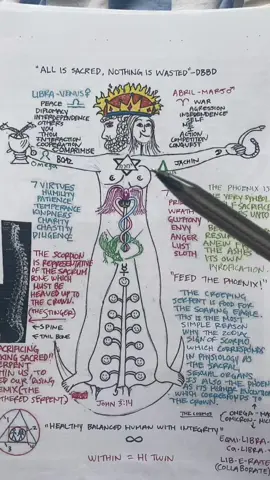 "ALL IS SACRED, NOTHING IS WASTED" - DBBD
LIBRA-VENUS ♀
PEACE
DIPLOMACY
INTERDEPENDENCE
OTHERS
YOU
THOU
INTERACTION
COOPERATION
COMPROMISE
OMEGA
BOAZ
ABRIL-MARS ♂
♈ WAR
AGRESSION
INDEPENDENCE
SELF
ME
I
ACTION
COMPETITION
CONQUEST
JACHIN
7 VIRTUES
HUMILITY
PATIENCE
TEMPERANCE
KINDNESS
CHARITY
CHASTITY
DILIGENCE
PRI
WRATH
GLUTTONY
ENVY
ANGER
LUST
SLOTH
THE PHOENIX IS
THE VERY SYMBOL
OF SELF SACRIFICE
ANEW FROM
THE ASHES
ITS OWN
PURIFICATION.
THE SCORPION
IS REPRESENTATIVE
OF THE SACRUM
BONE WHICH
MUST BE
HEAVED UP TO
THE CROWN.
(THE STINGER)
← SPINE
← TAIL BONE
"FEED THE PHOENIX!"
THE CREEPING
SERPENT IS FOOD FOR
THE SOARING EAGLE.
THIS IS THE MOST
SIMPLE REASON
WHY THE ZODIAC
SIGN OF SCORPIO,
WHICH CORRESPONDS
IN PHYSIOLOGY AS
THE SACRAL
SEXUAL ORGANS,
IS ALSO THE PHOENIX
AS ITS HIGHER EVOLUTION
WHICH CORRESPONDS TO
THE CROWN.
John 3:14
"HEALTHY BALANCED HUMAN WITH INTEGRITY"
∞
WITHIN = HI TWIN
OMEGA - MA
EQUI-LIBRA-
CO-LIBRA-
LIB-E-RATE
(COLLABORATE)